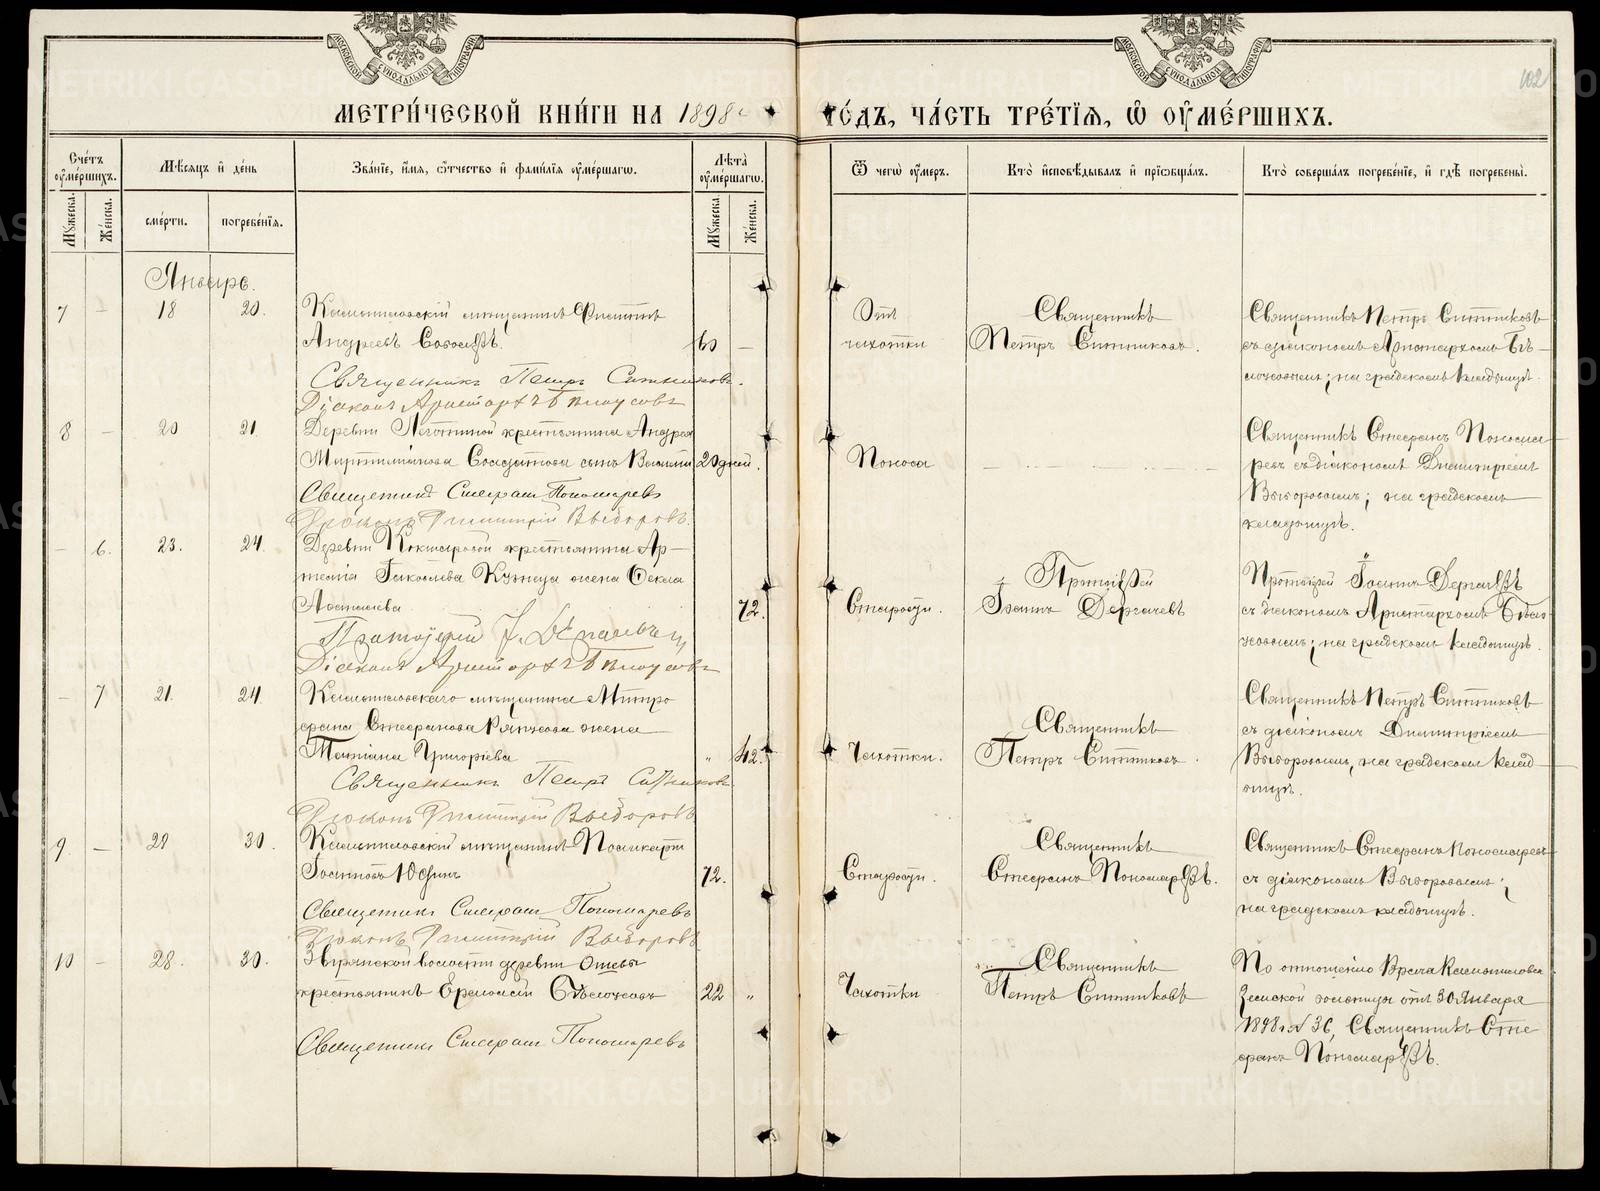 МЕТРИ́ЧЕСКОЙ КНИ́ГИ НА 1898 г
ГО́ДЪ, ЧА́СТЬ ТРЕ́ТЇѦ, Ѽ ОУ҆МЕ́РШИХЪ.
102
Сче́тъ оу҆ме́ршихъ.
Мѣ́сяцъ и҆ де́нь
Зва́нїе, и҆́мя, ѻ҆́тчество и҆ фами́лїя оу҆ме́ршагѡ.
Лѣта̀ оу҆ме́ршагѡ.
Ѿ чегѡ̀ оу҆́меръ.
Кто̀ и҆сповѣ́дывалъ и҆ прїѡбща́лъ.
Кто̀ соверша́лъ погребе́нїе, и҆ гдѣ̀ погребены̀.
Му́жеска.
Же́нска.
сме́рти.
погребе́нїя.
Му́жеска.
Же́нска.
Январь.
7 - 18 20. Камышловскій мѣщанинъ Филиппъ
Андреевъ Соловьевъ. 60 —
Священникъ Петръ Ситниковъ.
Діаконъ Аристархъ Бѣлоусовъ
Отъ
чахотки
Священникъ
Петръ Ситниковъ.
Священникъ Петръ Ситниковъ
съ діакономъ Аристархомъ Бѣ-
лоусовымъ; на градскомъ кладбищѣ.
8 - 20 21 Деревни крестьянина Андрея
Солдатова сынъ 20 дней.
Священникъ Стефанъ Пономаревъ
Діаконъ Димитрій Выборовъ.
Поноса
Священникъ Стефанъ Понома-
ревъ съ діакономъ Димитріемъ
Выборовымъ; на градскомъ
кладбищѣ.
- 6. 23. 24. Деревни Кокшаровой крестьянина Ар-
темія Іаковлева жена Ѳекла
72.
Протоіерей І. Дергачевъ
Діаконъ Аристархъ Бѣлоусовъ
Старости.
Протоіерей
Іоаннъ Дергачевъ
Протоіерей Іоаннъ Дергачевъ
съ діакономъ Аристархомъ Бѣло-
усовымъ; на градскомъ кладбищѣ.
- 7 21. 24 Камышловскаго мѣщанина Митро-
фана Стефанова жена
Татіана Григорьева " 42.
Священникъ Петръ Ситниковъ
Діаконъ Димитрій Выборовъ
Чахотки.
Священникъ
Петръ Ситниковъ.
Священникъ Петръ Ситниковъ
съ діакономъ Димитріемъ
Выборовымъ, на градскомъ клад-
бищѣ.
9 - 28 30. Камышловскій мѣщанинъ Поликарпъ
Іоанновъ Юдинъ 72.
Священникъ Стефанъ Пономаревъ
Діаконъ Димитрій Выборовъ
Старости.
Священникъ
Стефанъ Пономаревъ.
Священникъ Стефанъ Пономаревъ
съ діакономъ Выборовымъ;
на градскомъ кладбищѣ.
10 - 28. 30. волости деревни
крестьянинъ 22 "
Священникъ Стефанъ Пономаревъ
Чахотки
Священникъ
Петръ Ситниковъ
По отношенію Врача Камышловск.
Земской больницы отъ 30 Января
1898 г. № 36, Священникъ Сте-
фанъ Пономаревъ.